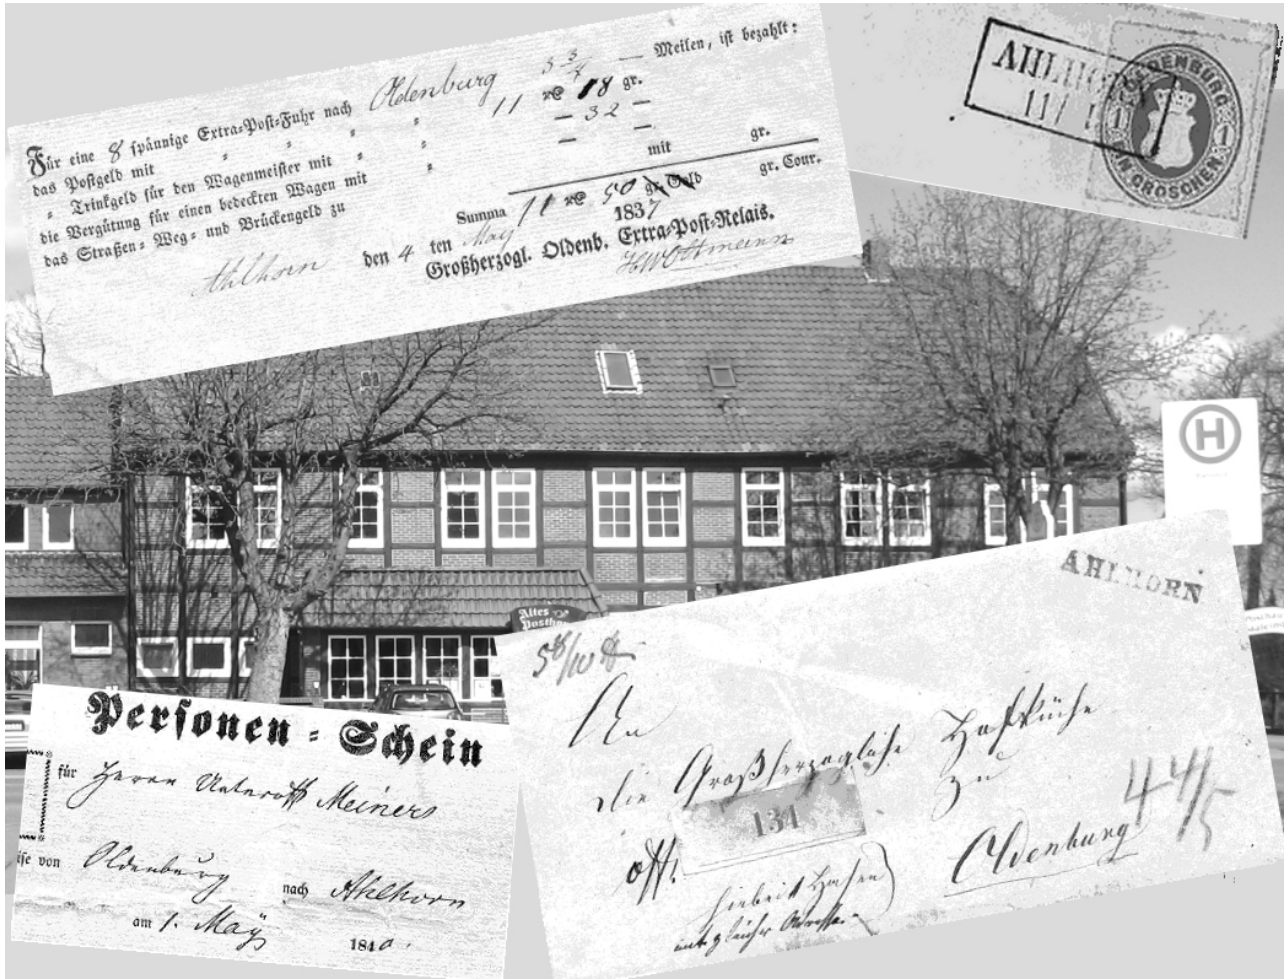 Für eine 8 spännige Extra-Post-Fuhr nach Oldenburg 3 3/4 — Meilen, ist bezahlt:
das Postgeld mit " " " 11 18 gr.
" Trinkgeld für den Wagenmeister mit " " — 32 —
die Vergütung für einen bedeckten Wagen mit " — —
das Straßen- Weg- und Brückengeld zu mit gr.
Summa 11 50 gr. Gold gr. Cour.
Ahlhorn den 4 ten May 1837
Großherzogl. Oldenb. Extra-Post-Relais.
AHLHORN
11/
OLDENBURG
1 1
EIN GROSCHEN
H
Altes
Personen-Schein
für Herrn Unteroff Meiners
ise von Oldenburg nach Ahlhorn
am 1. May 1840.
AHLHORN
An
die Großherzogliche Hofküche
zu
131
Oldenburg
44/5
off.
hiebei